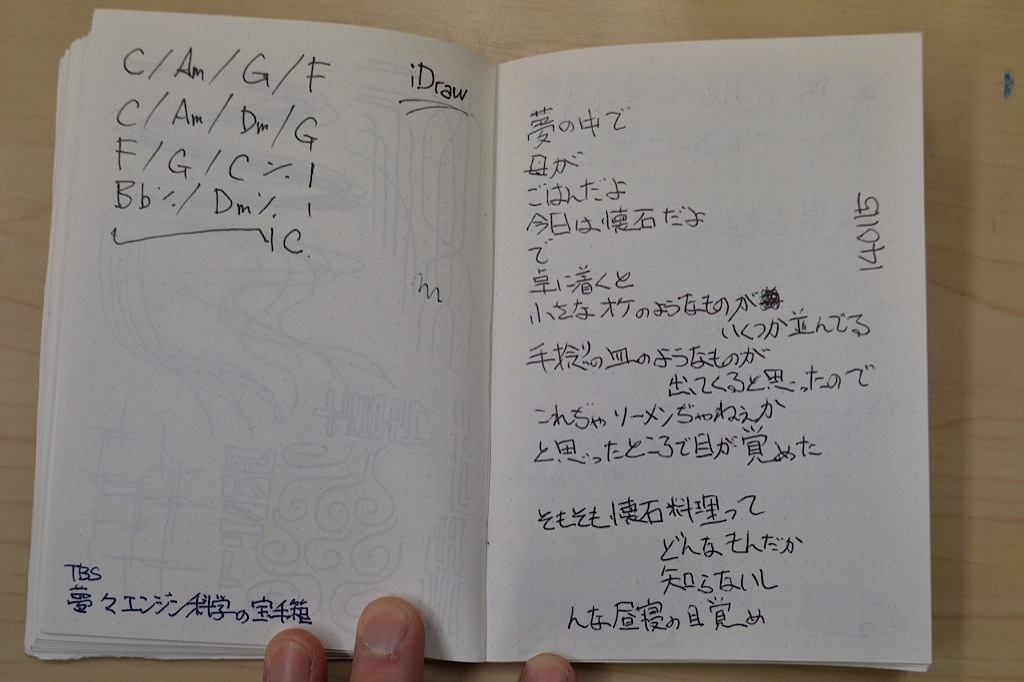 C/Am/G/F
C/Am/Dm/G
F/G/C ٪ 1
Bb٪/Dm٪ 1
1C.
iDraw
m
TBS
夢々エンジン科学の宝手箱
夢の中で
母が
ごはんだよ
今日は懐石だよ
で
卓に着くと
小さなオケのようなものが
いくつか並んでる
手捻りの皿のようなものが
出てくると思ったので
これぢゃソーメンぢゃねぇか
と思ったところで目が覚めた
そもそも懐石料理って
どんなもんだか
知らないし
んな昼寝の目覚め
140115